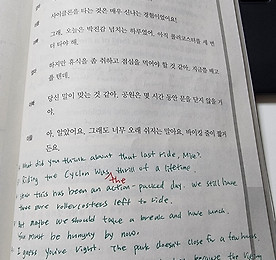 사이클론을 타는 것은 매우 신나는 경험이었어요!
그래, 오늘은 박진감 넘치는 하루였어. 아직 롤러코스터를 세 번
더 타야 해.
하지만 휴식을 좀 취하고 점심을 먹어야 할 것 같아. 지금쯤 배고
플 텐데.
당신 말이 맞는 것 같아. 공원은 몇 시간 동안 문을 닫지 않을 거
야.
아, 알았어요. 그래도 너무 오래 쉬지는 말아요. 바이킹 줄이 길거
든요.
What did you think about that last ride, Mike?
Riding the Cyclon was the thrill of a lifetime.
this has been an action-packed day. we still have
three rollercoasters left to ride.
maybe we should take a break and have lunch.
You must be hungry by now.
guess you're right. The park doesn't close for a few hours.
because the Viking